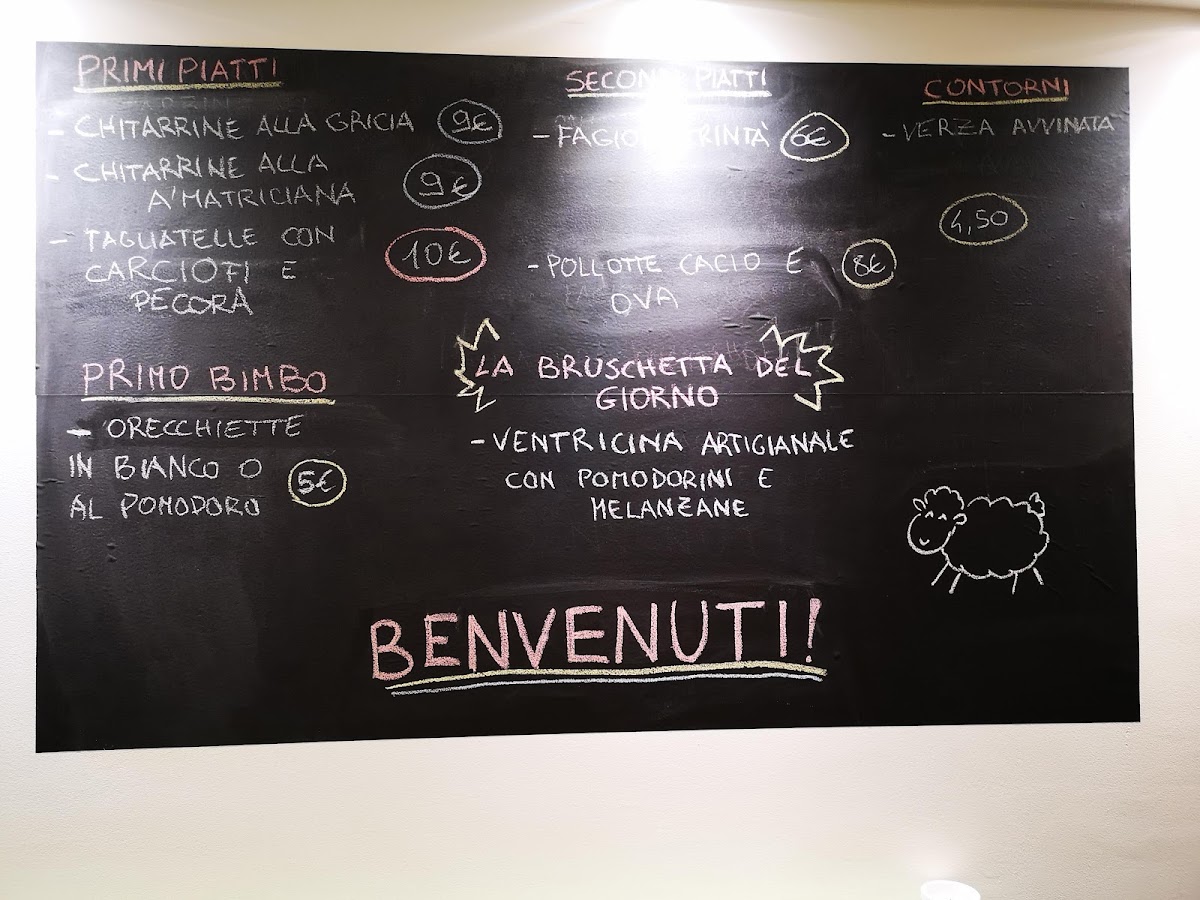 PRIMI PIATTI
- CHITARRINE ALLA GRICIA 9€
- CHITARRINE ALLA
A'MATRICIANA 9€
- TAGLIATELLE CON
CARCIOFI E
PECORA 10€
PRIMO BIMBO
- ORECCHIETTE
IN BIANCO O
AL POMODORO 5€
PIATTI
6€
- POLLOTTE CACIO E
OVA 8€
LA BRUSCHETTA DEL
GIORNO
- VENTRICINA ARTIGIANALE
CON POMODORINI E
MELANZANE
CONTORNI
- VERZA AVVINATA
4,50
BENVENUTI!